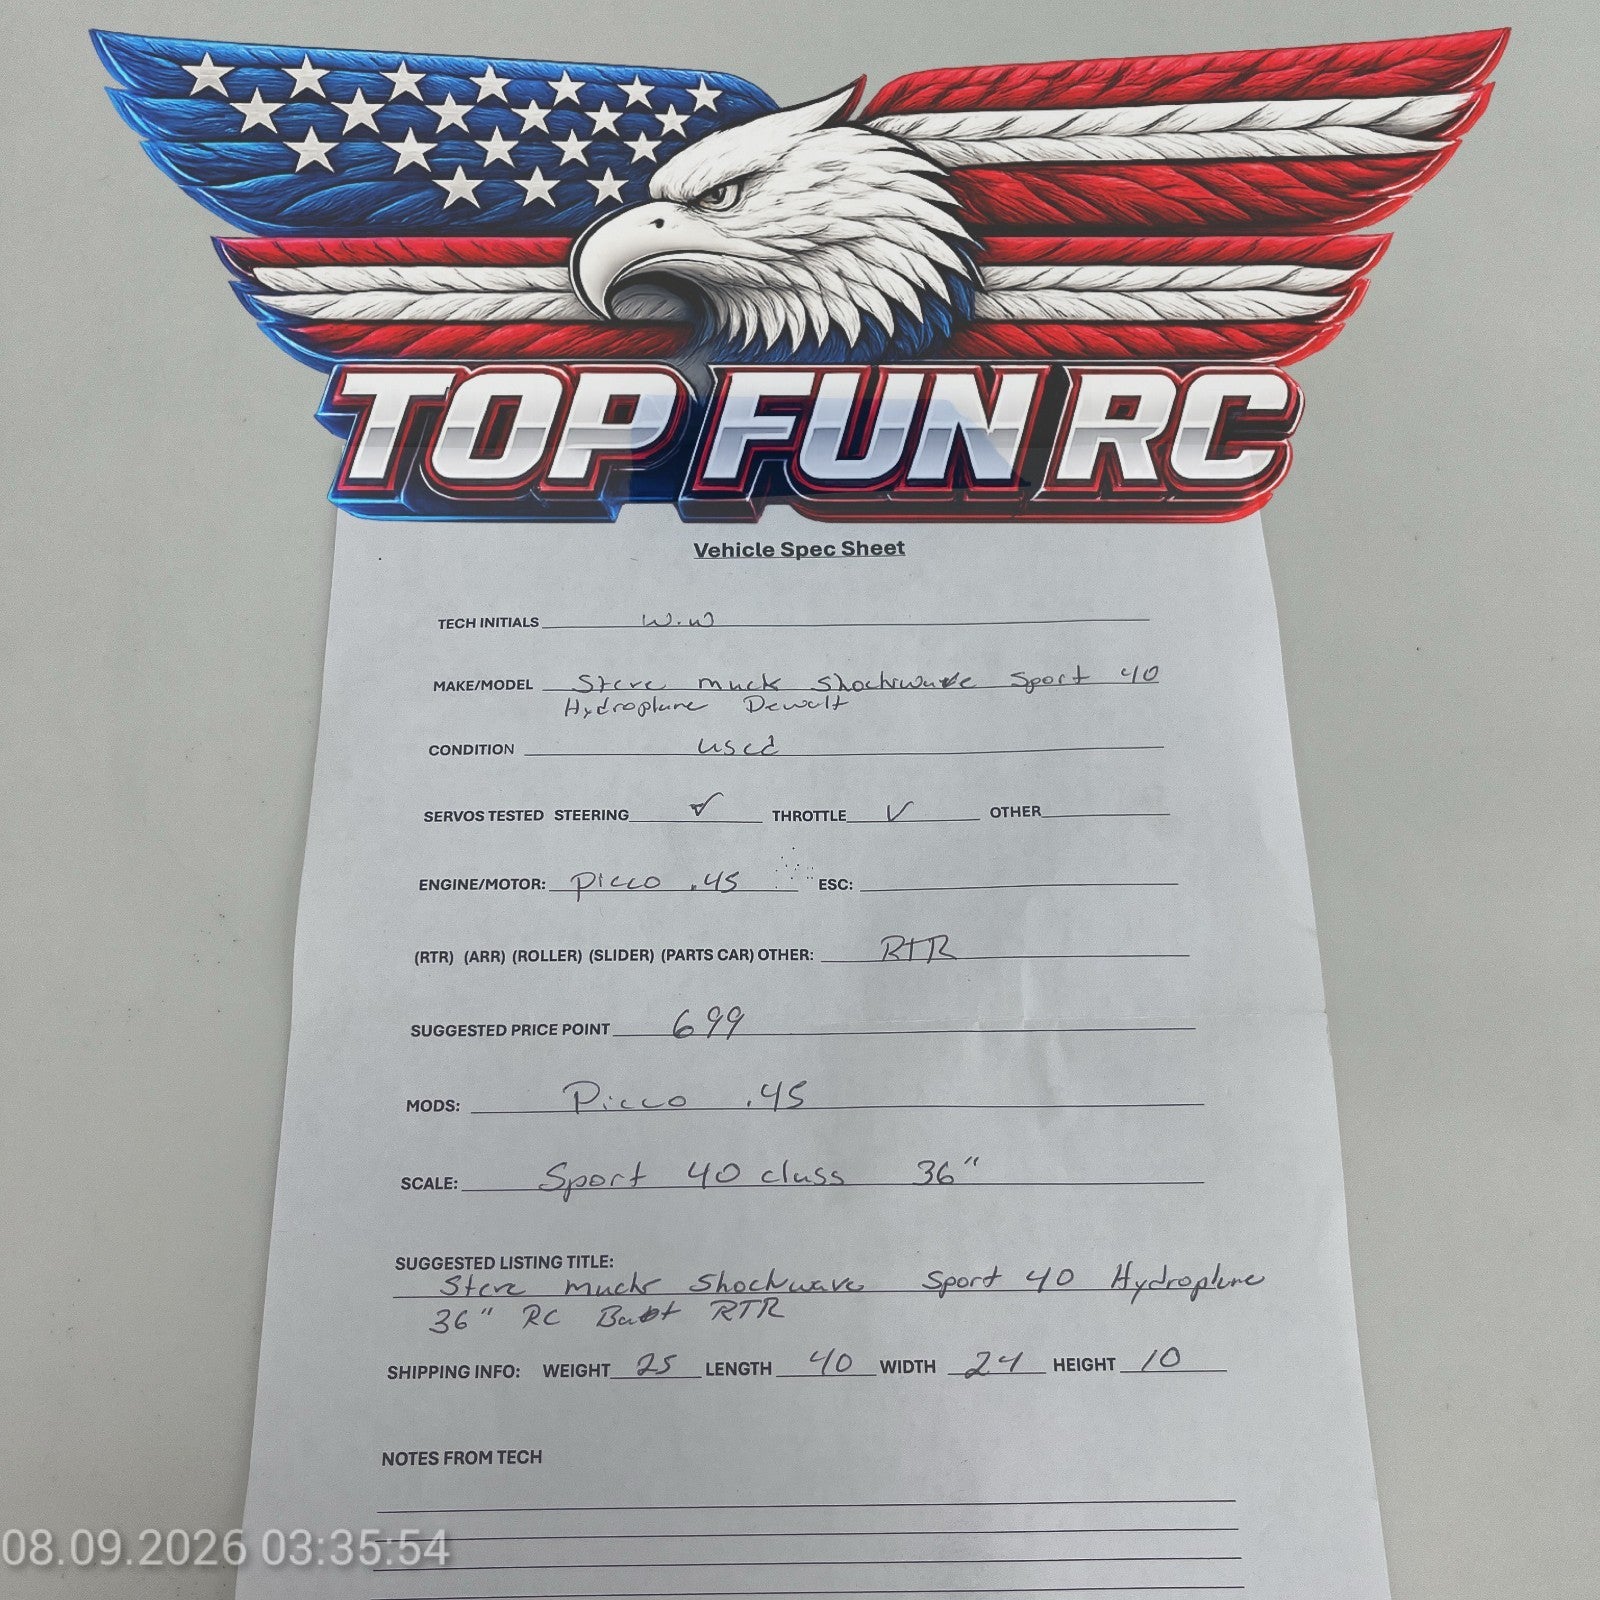 TOP FUN RC
Vehicle Spec Sheet
TECH INITIALS W.W
MAKE/MODEL Steve muck Shockwave Sport 40
Hydroplane Dewalt
CONDITION used
SERVOS TESTED STEERING ✓ THROTTLE ✓ OTHER
ENGINE/MOTOR: Picco .45 ESC:
(RTR) (ARR) (ROLLER) (SLIDER) (PARTS CAR) OTHER: RTR
SUGGESTED PRICE POINT 699
MODS: Picco .45
SCALE: Sport 40 class 36"
SUGGESTED LISTING TITLE:
Steve mucks Shockwave Sport 40 Hydroplane
36" RC Boat RTR
SHIPPING INFO: WEIGHT 25 LENGTH 40 WIDTH 24 HEIGHT 10
NOTES FROM TECH
08.09.2026 03:35:54